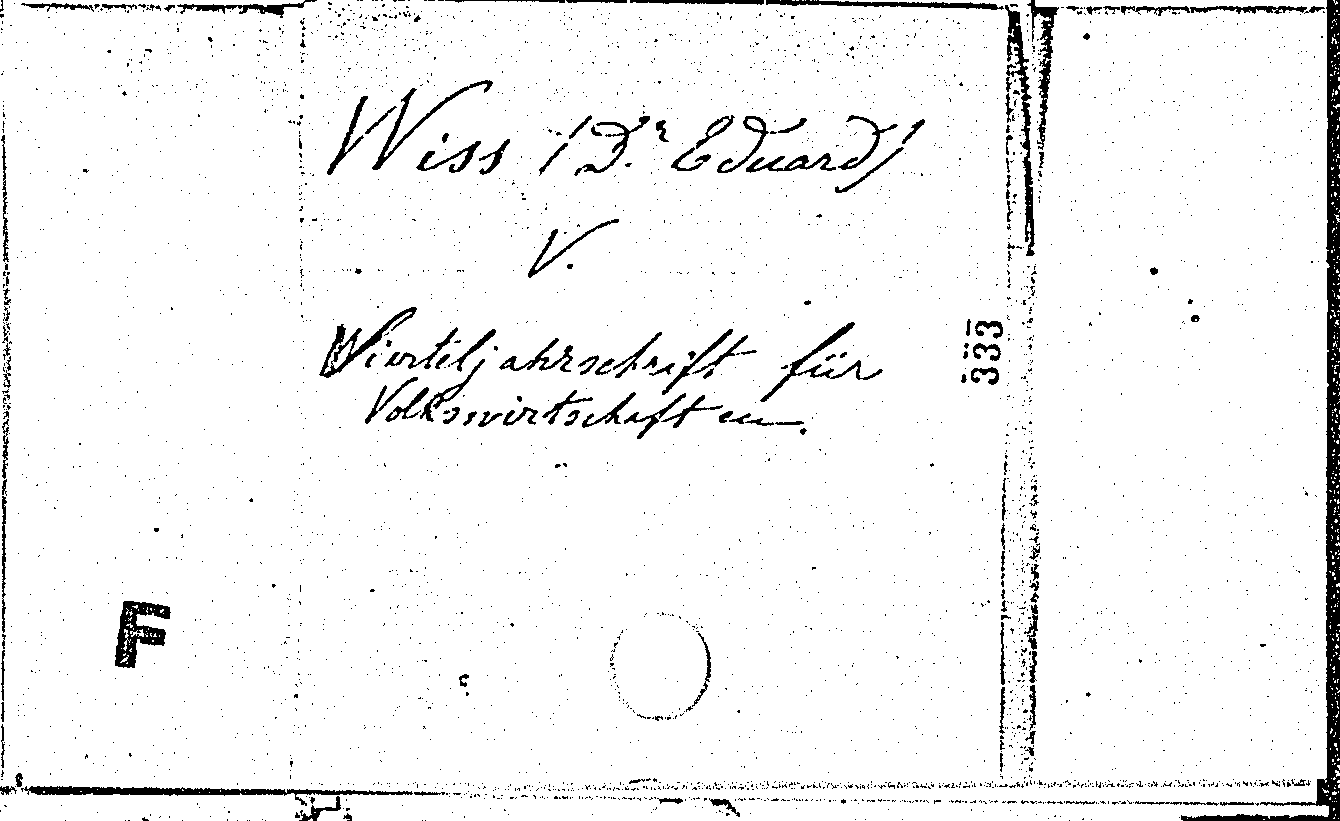 Wiss (Dr Eduard)
V.
Vierteljahrschrift für
Volkswirtschaft en.
333
F